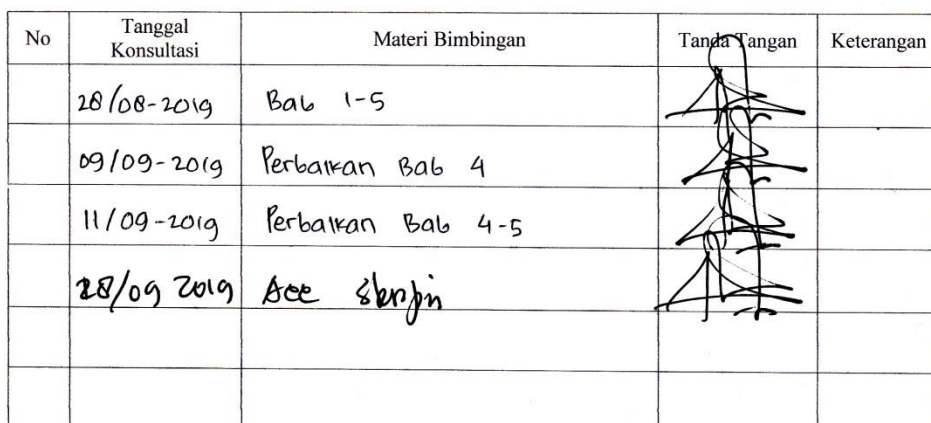 No Tanggal Konsultasi Materi Bimbingan Tanda Tangan Keterangan
28/08-2019 Bab 1-5
09/09-2019 Perbaikan Bab 4
11/09-2019 Perbaikan Bab 4-5
28/09 2019 Acc Skripsi